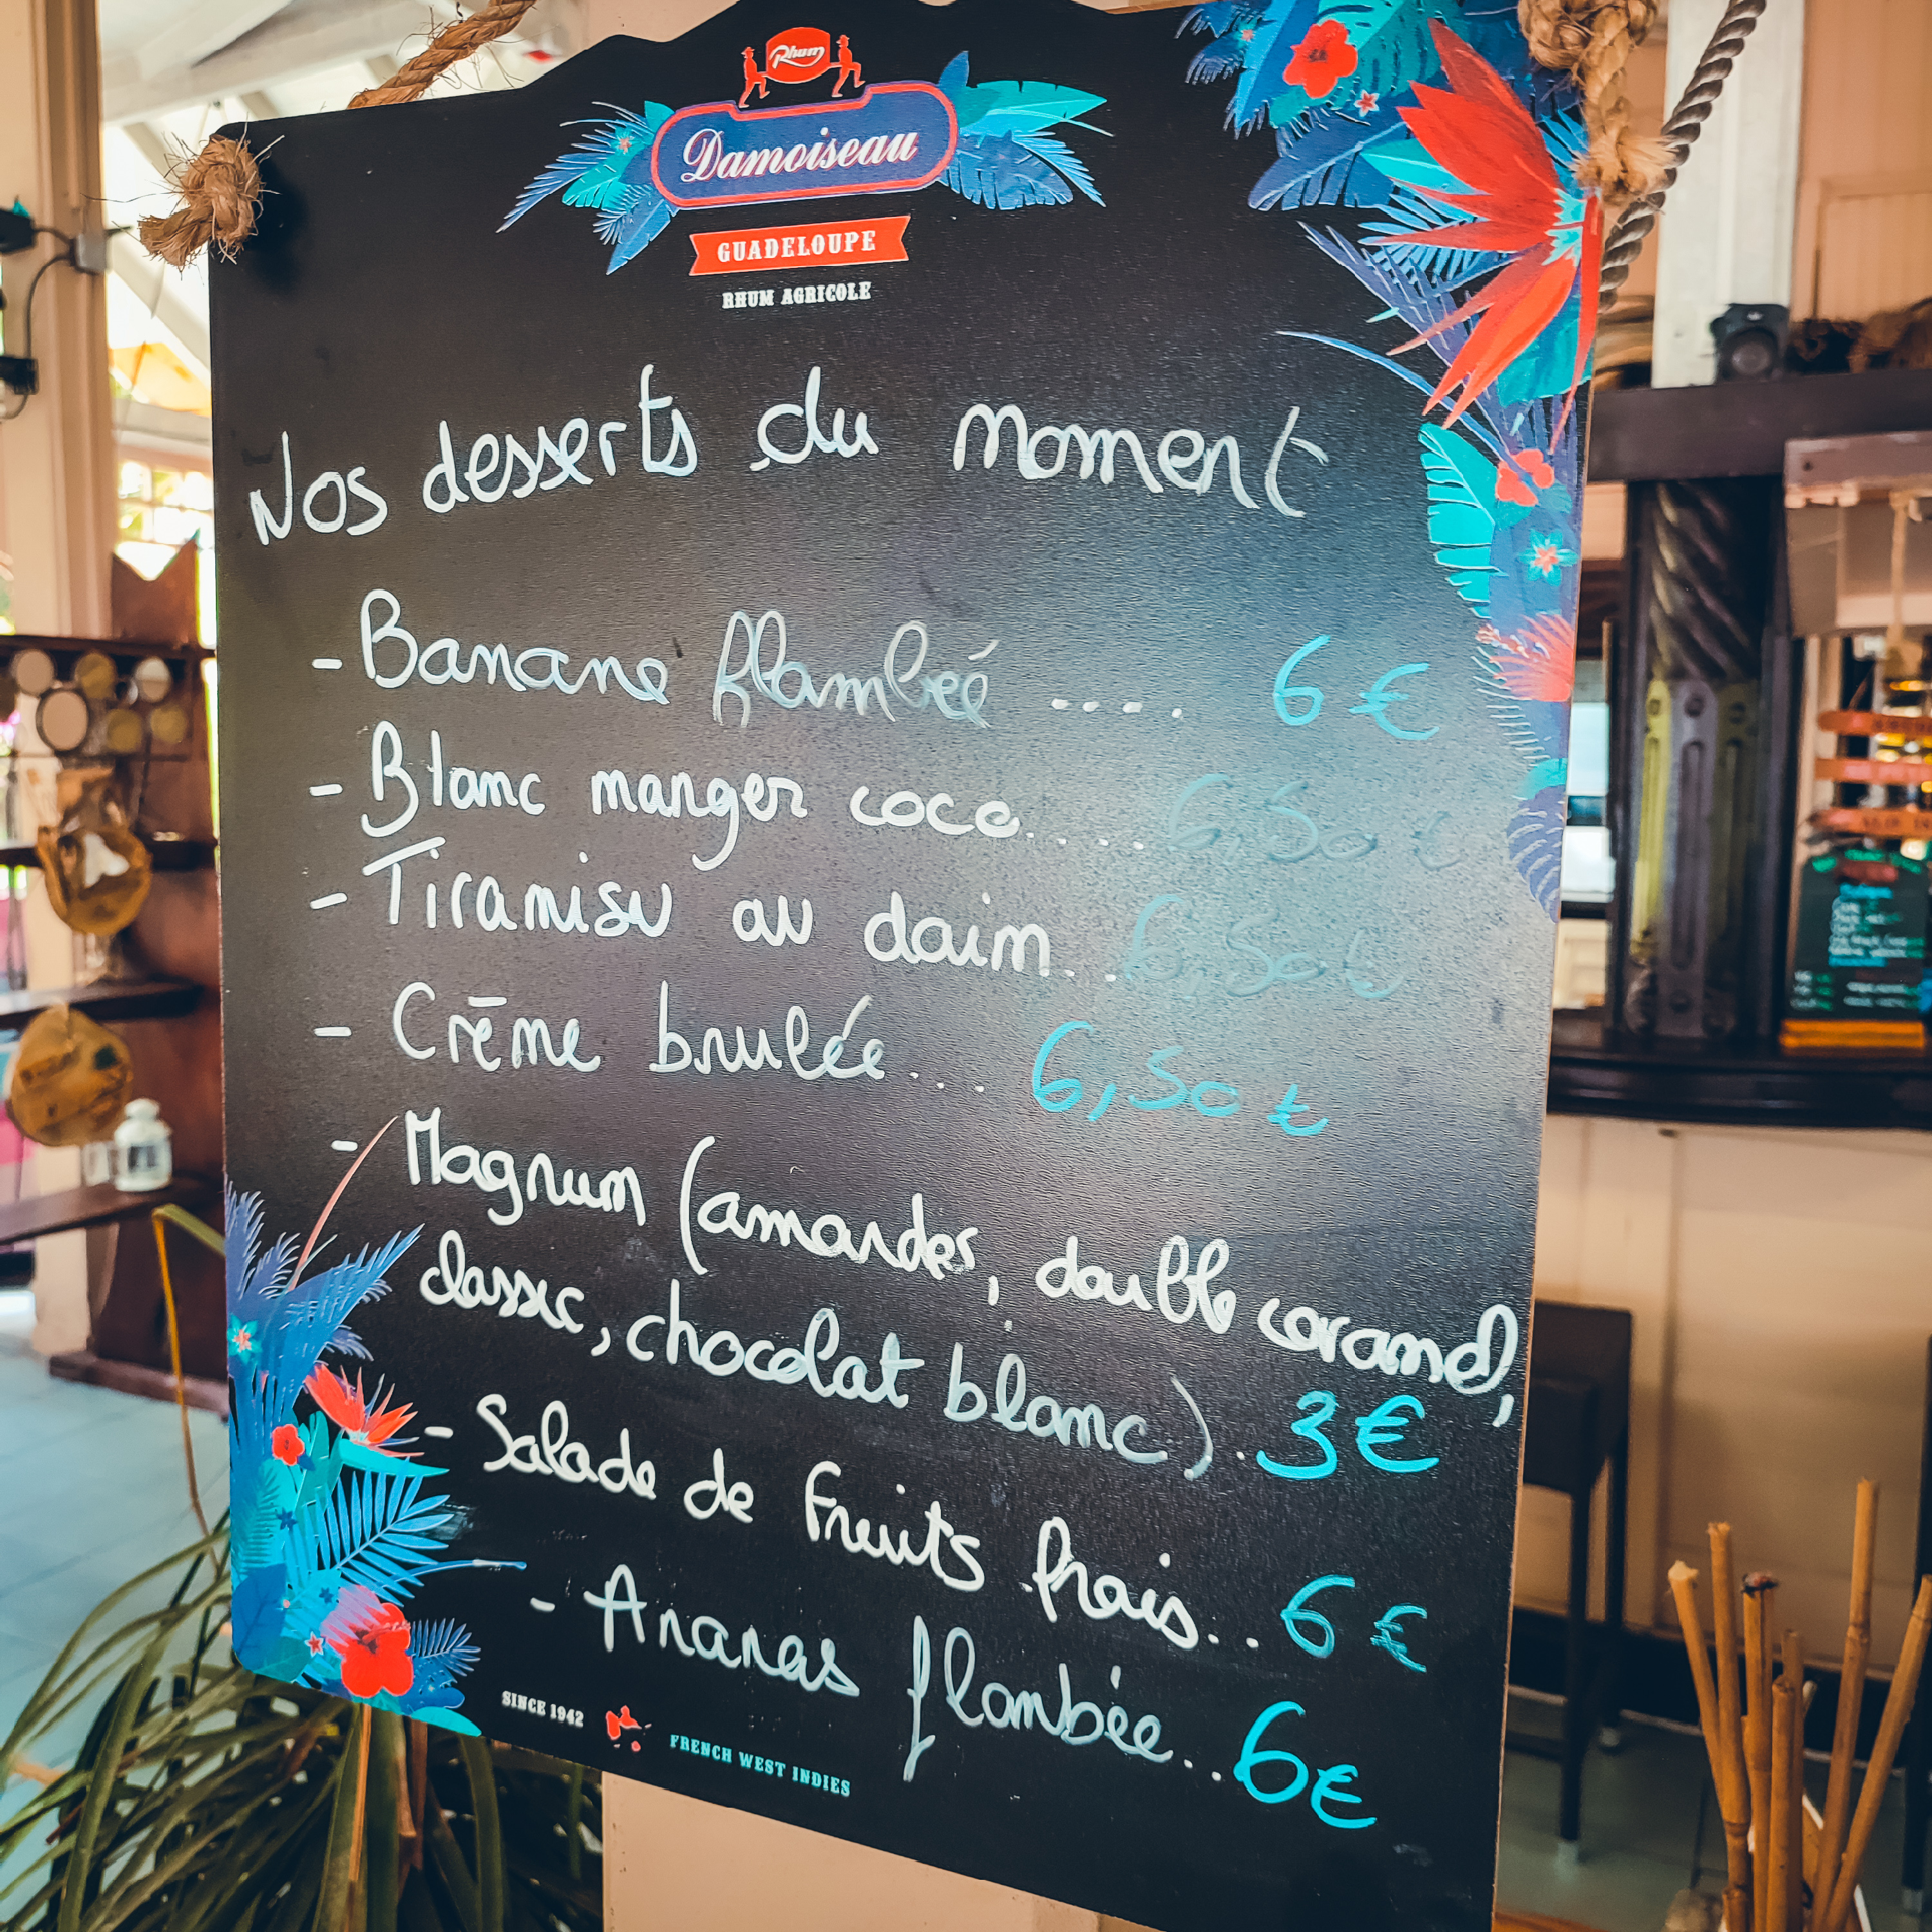 Rhum
Damoiseau
GUADELOUPE
RHUM AGRICOLE
Nos desserts du moment
- Banane flambée ..... 6 €
- Blanc manger coco..... 6,50 €
- Tiramisu au daim... 6,50 €
- Crème brulée.... 6,50 €
- Magnum (amandes, double caramel,
classic, chocolat blanc). 3 €
- Salade de Fruits frais.. 6 €
- Ananas flambée.. 6 €
SINCE 1942 FRENCH WEST INDIES